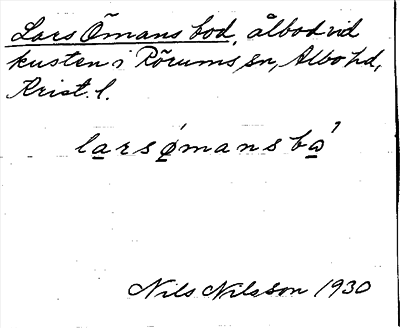 Lars Ömans bod, ålbod vid
kusten i Rörums sn, Albo hd,
Krist. l.
larsǿmansbω̲'
Nils Nilsson 1930